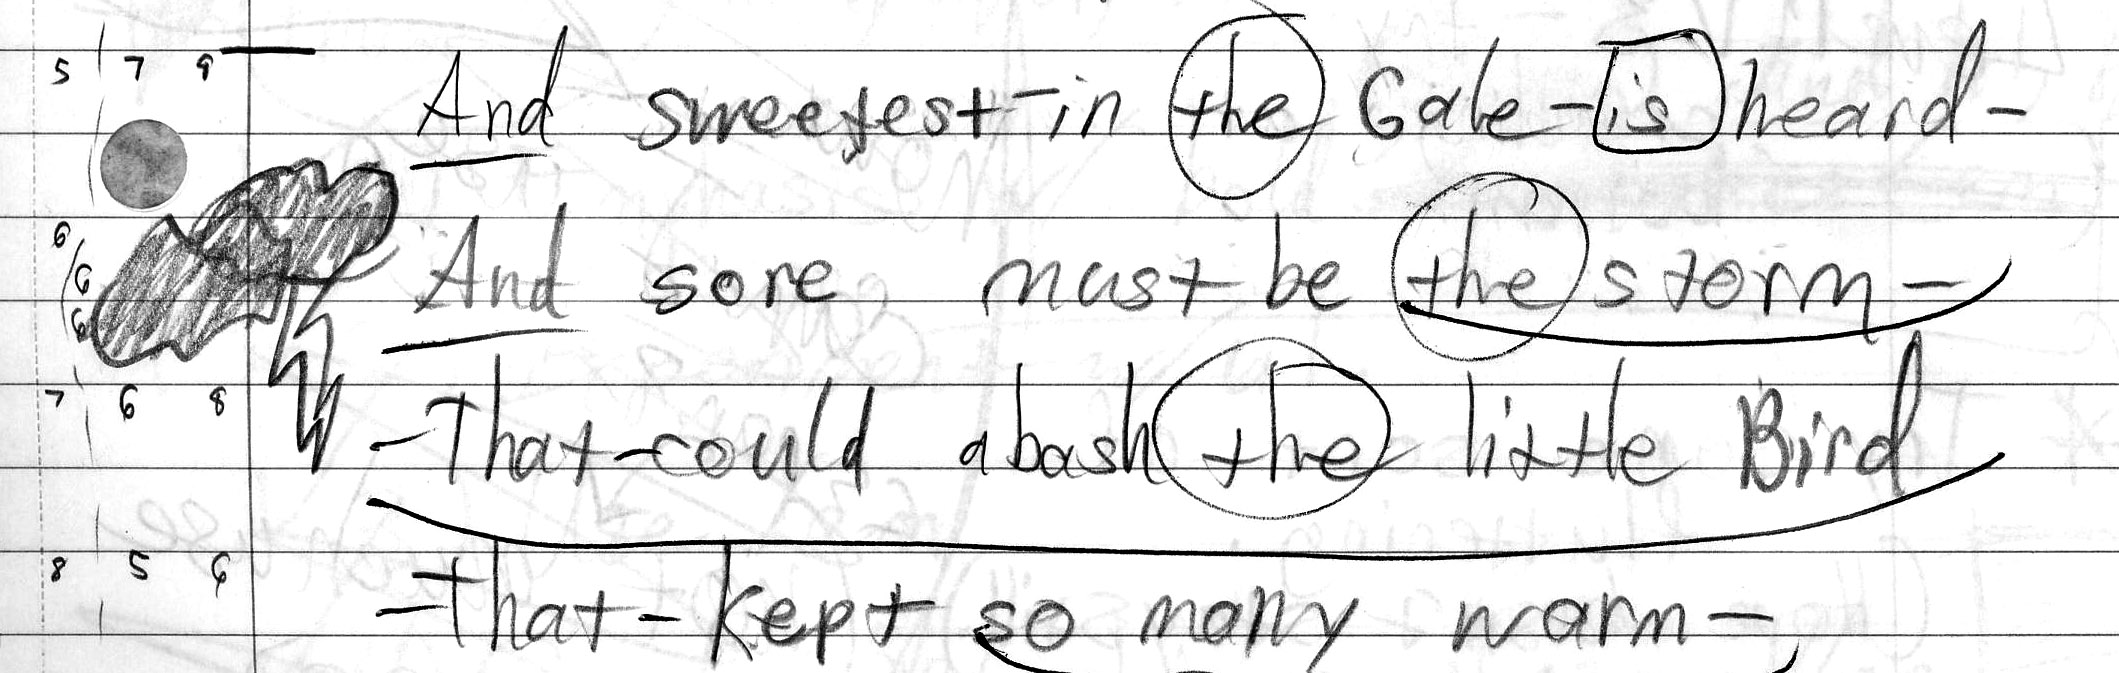 5 7 9 And sweetest-in the Gale-is heard-
6 And sore must be the storm-
6
6
7 6 8 -That-could abash the little Bird
8 5 6 -That-kept so many warm-